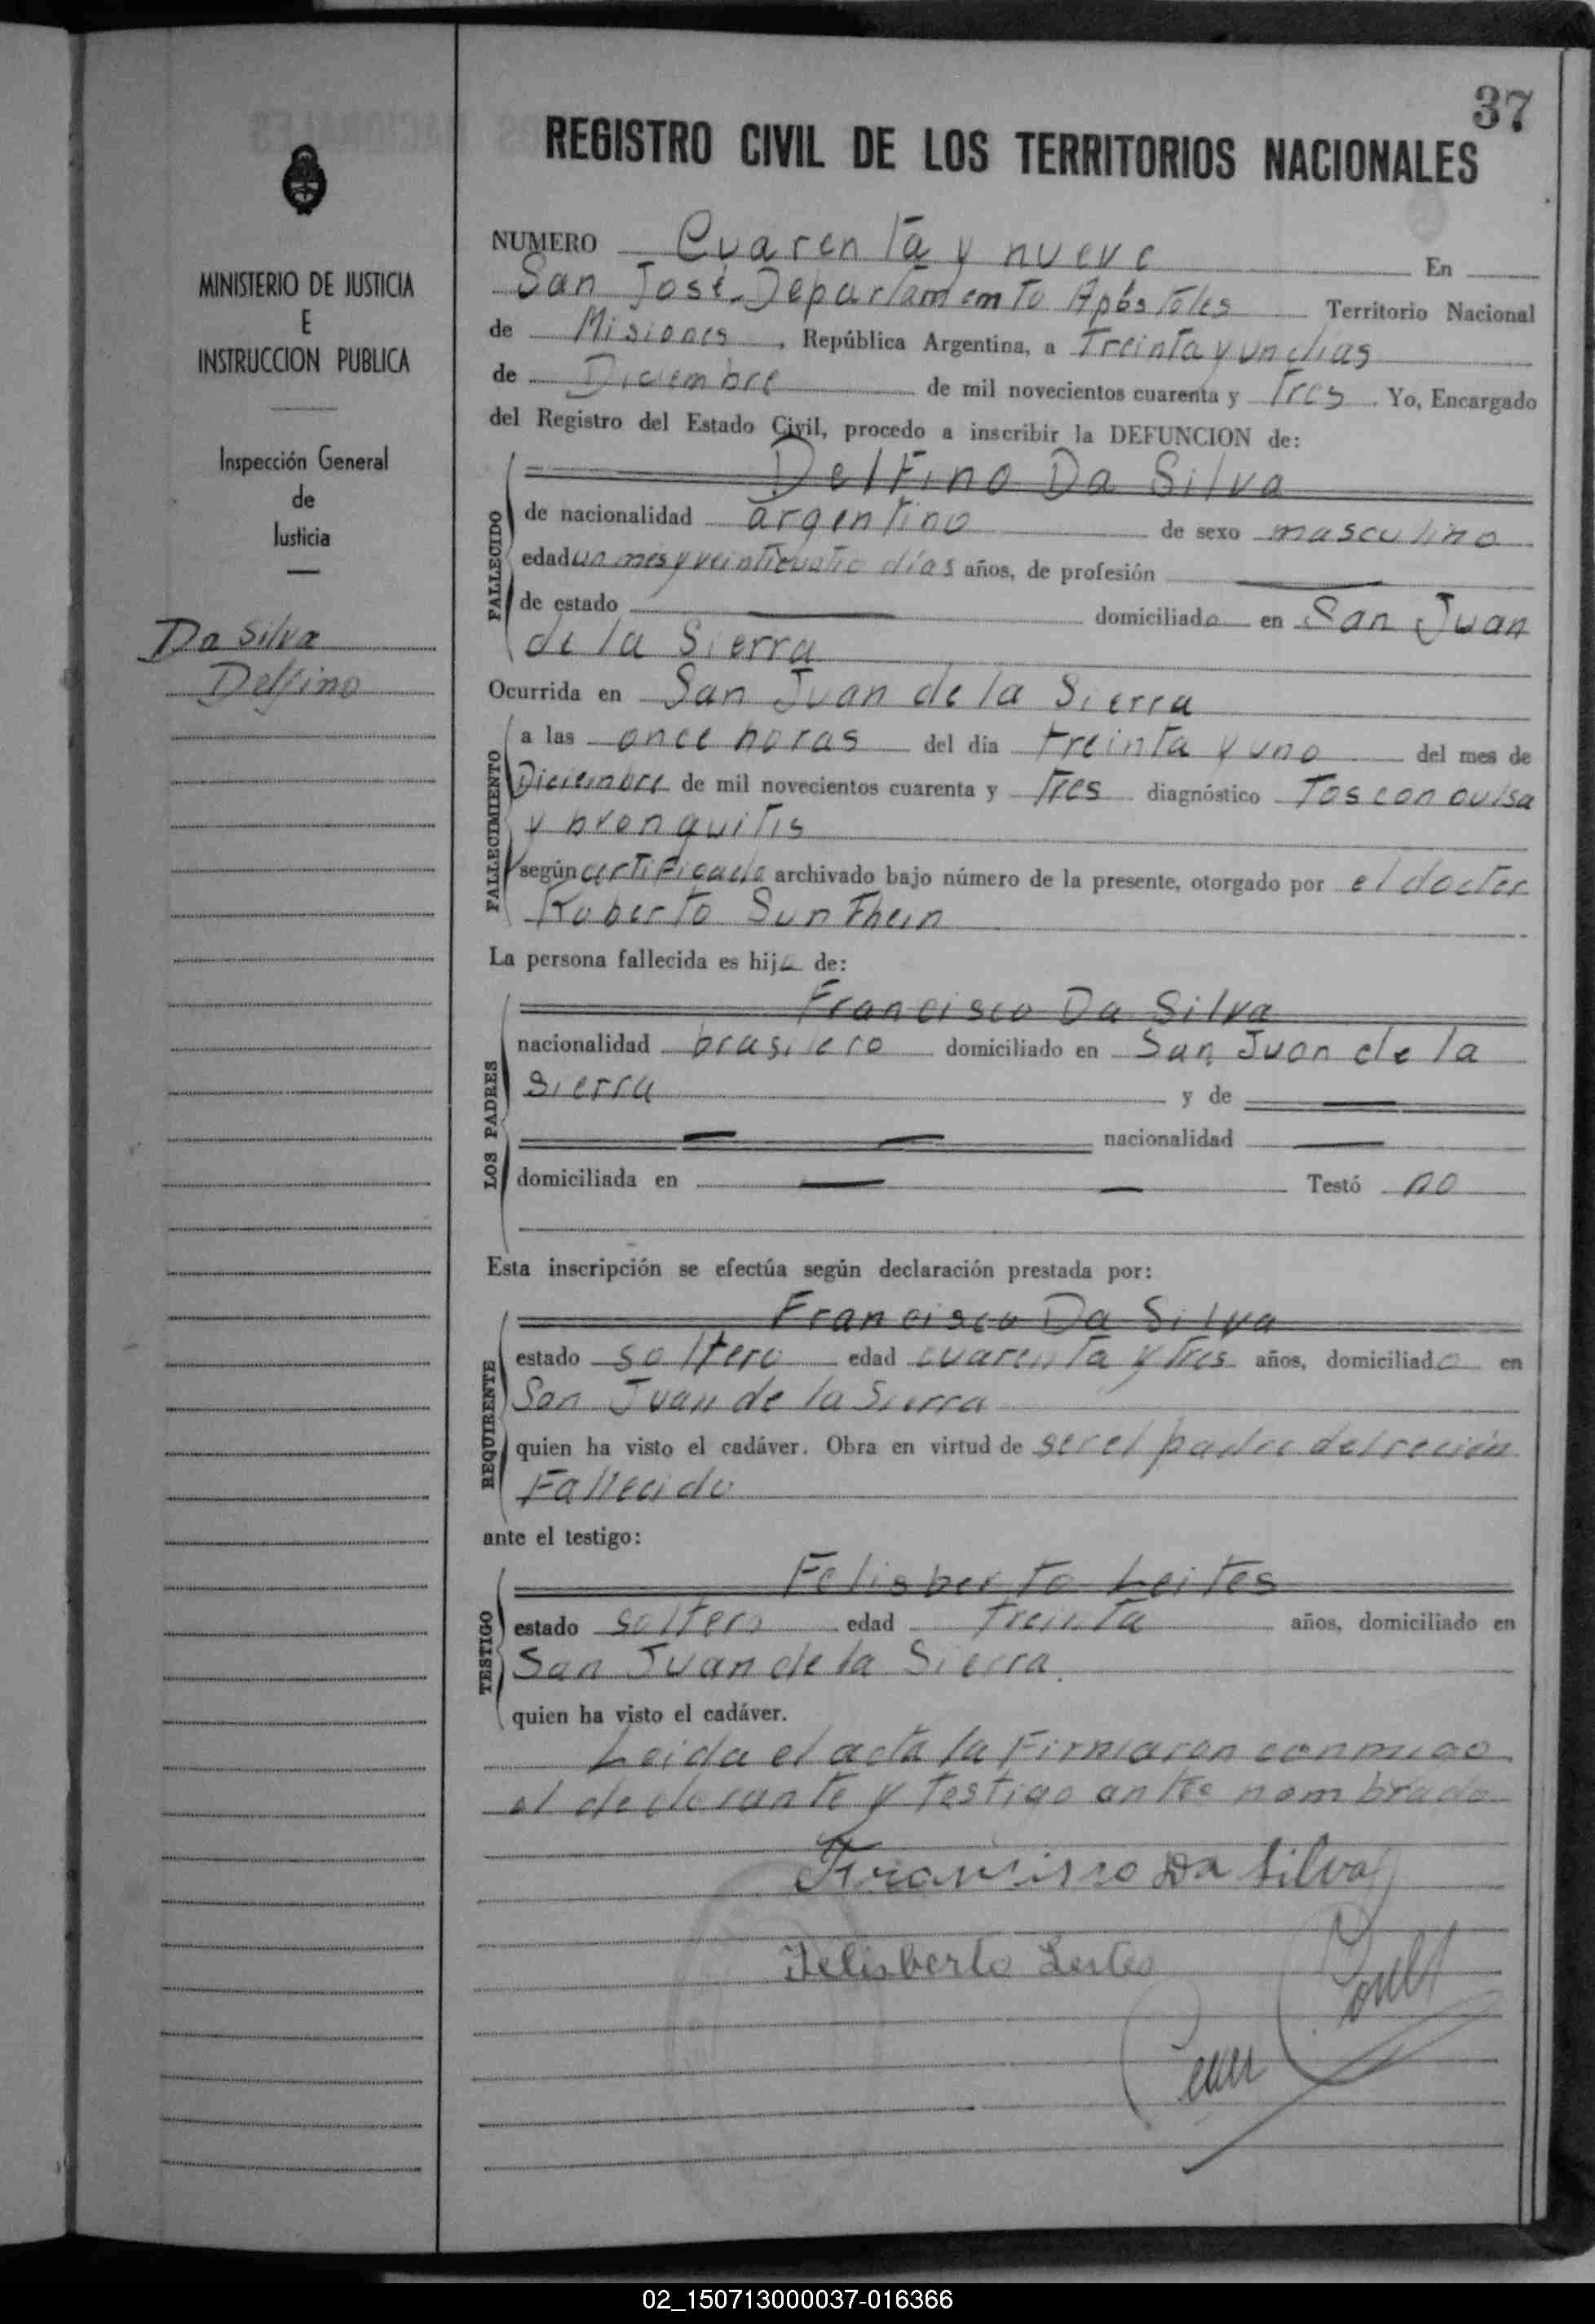 37
REGISTRO CIVIL DE LOS TERRITORIOS NACIONALES
MINISTERIO DE JUSTICIA
E
INSTRUCCION PUBLICA
Inspección General
de
Justicia
Da Silva
Delfino
NUMERO Cuarenta y nueve En
San José-Departamento Apóstoles Territorio Nacional
de Misiones, República Argentina, a Treinta y un dias
de Diciembre de mil novecientos cuarenta y Tres. Yo, Encargado
del Registro del Estado Civil, procedo a inscribir la DEFUNCION de:
FALLECIDO
Delfino Da Silva
de nacionalidad argentino de sexo masculino
edad un mes y veinticuatro días años, de profesión
de estado domiciliado en San Juan
de la Sierra
Ocurrida en San Juan de la Sierra
FALLECIMIENTO
a las once horas del día treinta y uno del mes de
Diciembre de mil novecientos cuarenta y Tres diagnóstico Tos convulsa
y bronquitis
según certificado archivado bajo número de la presente, otorgado por el doctor
Roberto Sunthein
La persona fallecida es hijo de:
LOS PADRES
Francisco Da Silva
nacionalidad brasilero domiciliado en San Juan de la
Sierra y de
nacionalidad
domiciliada en Testó no
Esta inscripción se efectúa según declaración prestada por:
REQUIRENTE
Francisco Da Silva
estado soltero edad cuarenta y tres años, domiciliado en
San Juan de la Sierra
quien ha visto el cadáver. Obra en virtud de ser el padre del recién
Fallecido
ante el testigo:
TESTIGO
Felisberto Leites
estado soltero edad treinta años, domiciliado en
San Juan de la Sierra.
quien ha visto el cadáver.
Leida el acta la Firmaron conmigo
el declarante y testigo antes nombrado
Francisco Da Silva
Felisberto Leites
02_150713000037-016366